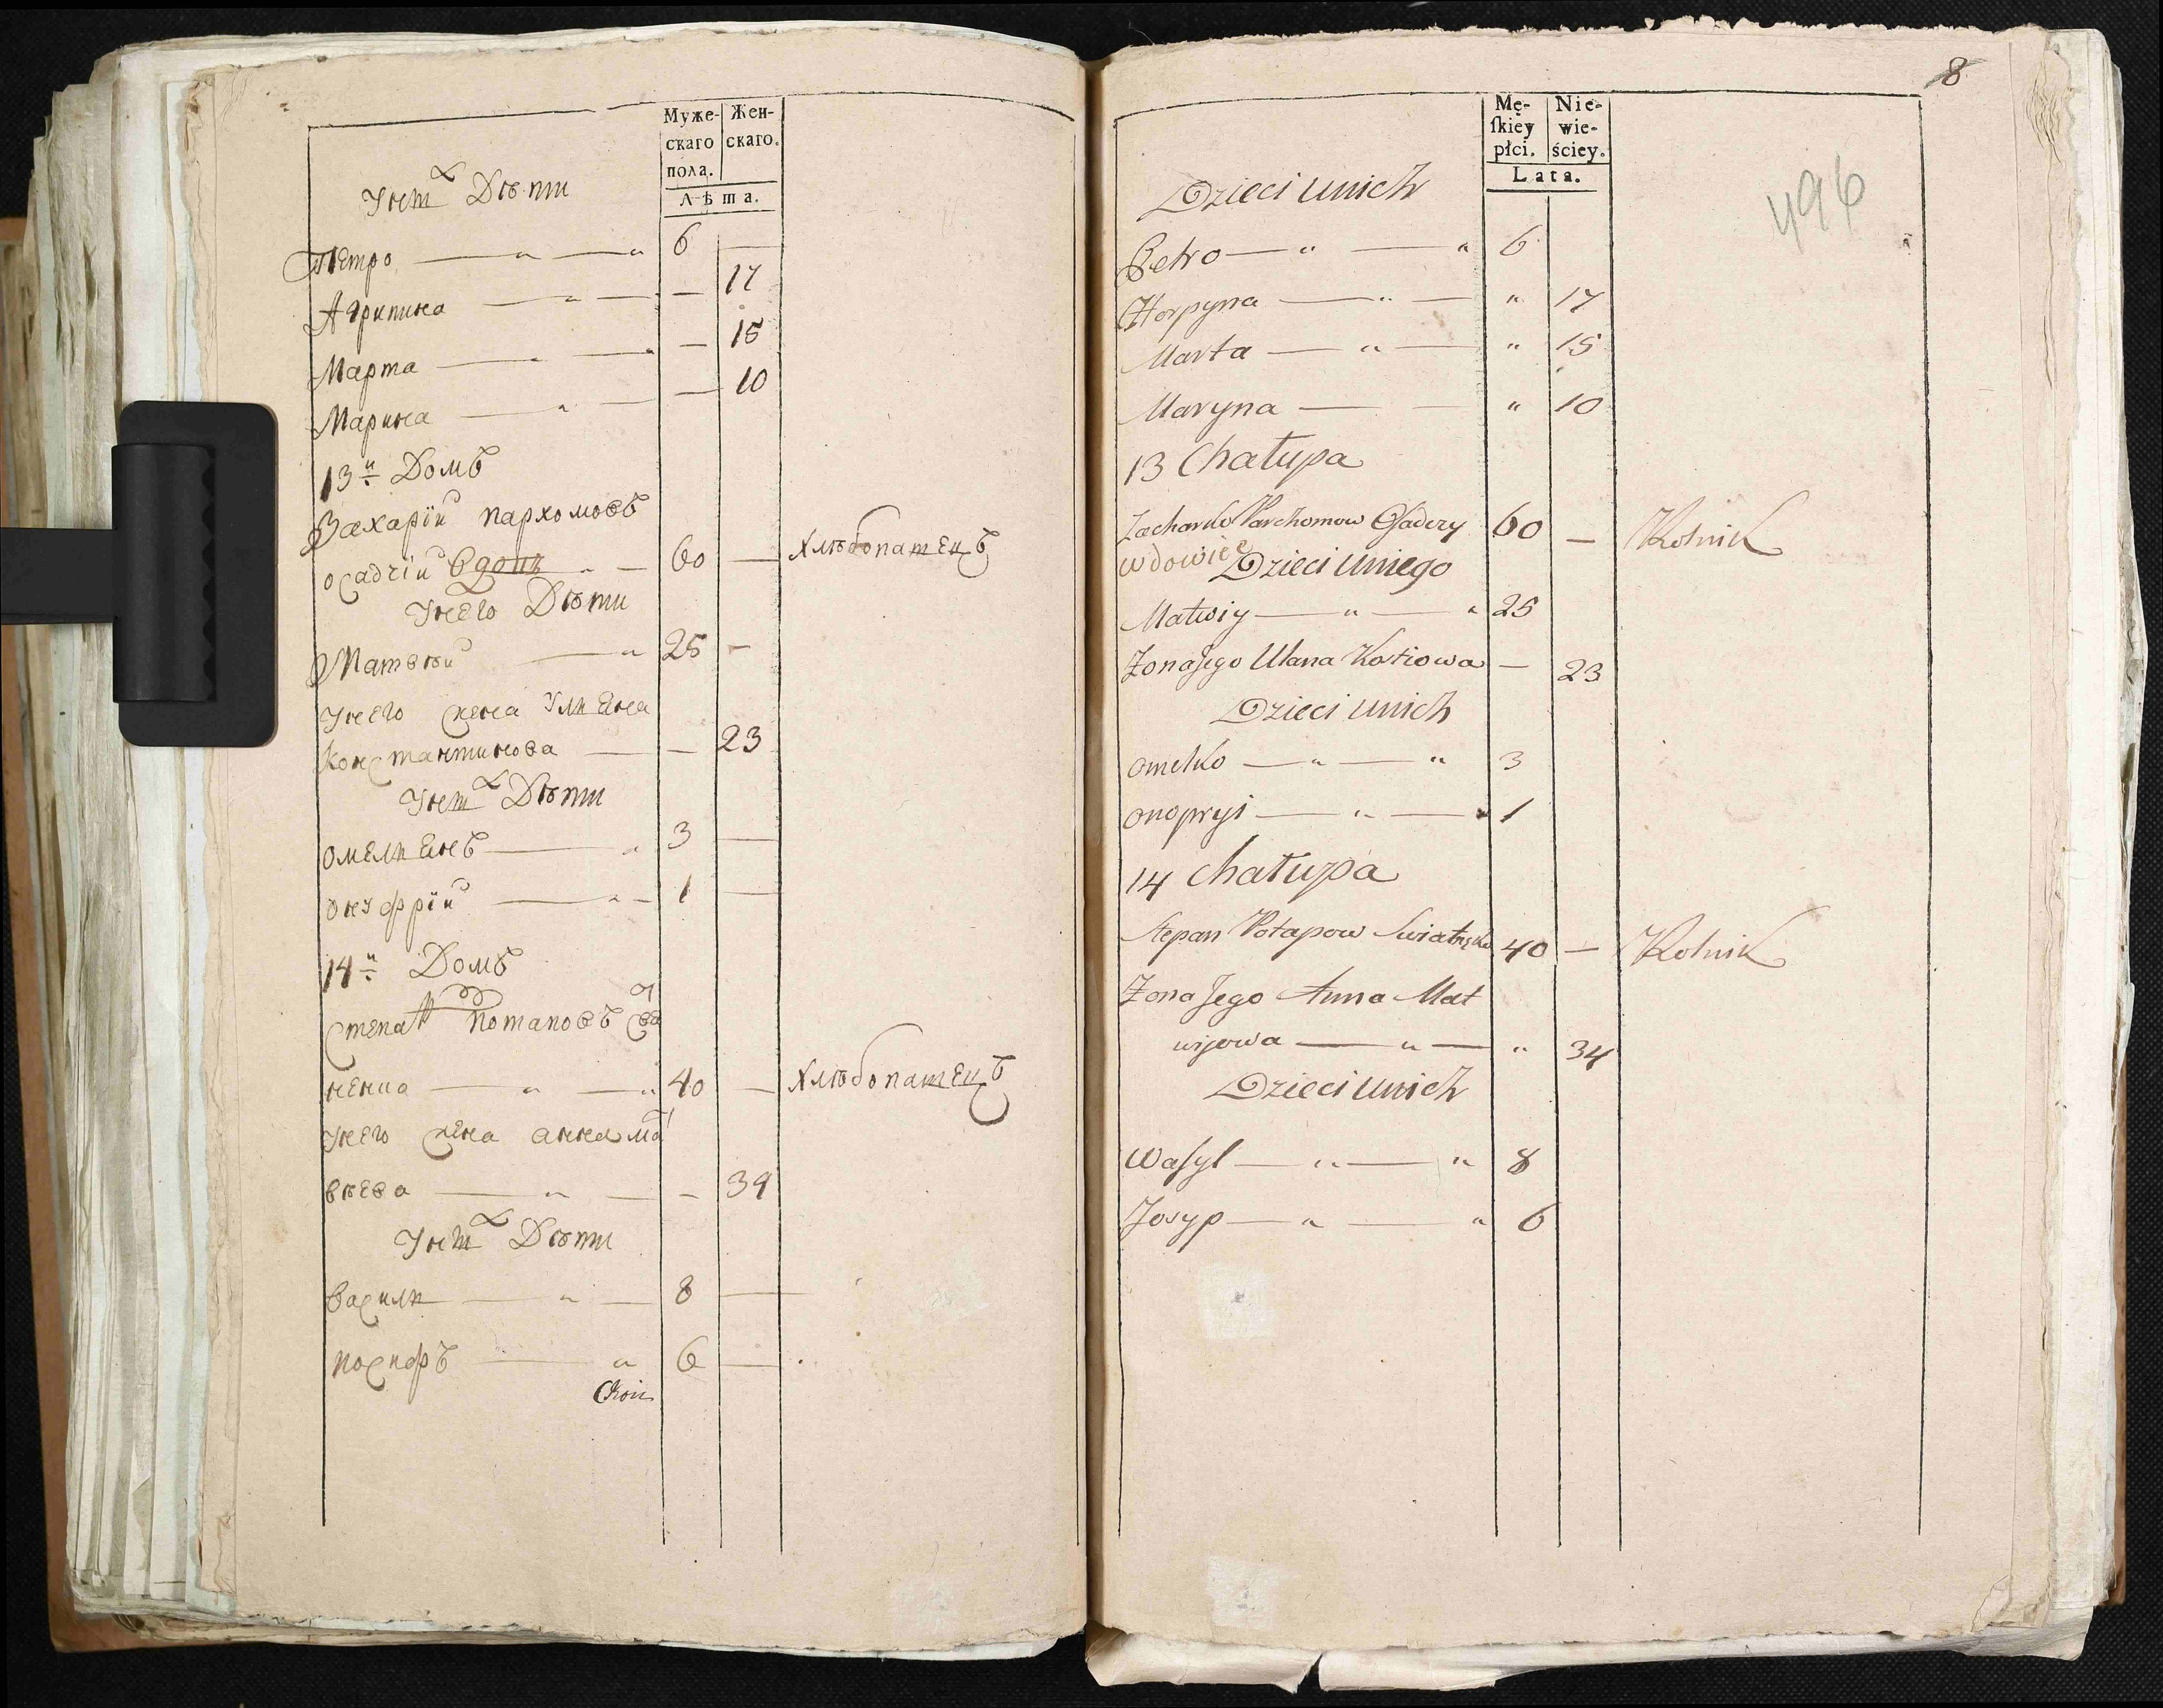 Муже-
скаго
пола.
Жен-
скаго.
Лѣта.
У нихъ Дѣти
Петро 6 —
Агрипина — 17
Марта — 15
Марина — 10
13й Домъ
Захарїй Пархомовъ
осадчїй вдовъ 60 — Хлѣбопашецъ
У него Дѣти
Матвѣй 25 —
У него жена Ульяна
Константинова — 23
У нихъ Дѣти
Омельянъ 3 —
Онуфрїй 1 —
14й Домъ
Степанъ Потаповъ
40 — Хлѣбопашецъ
У него жена Анна мат
вѣева — 34
У нихъ Дѣти
Василь 8 —
Иосифъ 6 —
8
496
Mę-
ſkiey
płci.
Nie-
wie-
ściey.
Lata.
Dzieci unich
Petro — " — " 6
Horpyna — " — " 17
Marta — " — " 15
Maryna — — " 10
13 Chałupa
Zacharko Parchomow Osadczy 60 — Rolnik
wdowiec Dzieci uniego
Matwiy — " — " 25
Żona Jego Ulana Kostiowa — 23
Dzieci unich
Omelko — " — " 3
Onopryi — " — " 1
14 Chałupa
Stepan Potapow 40 — Rolnik
Żona Jego Anna Mat
wijowa — " — " 34
Dzieci unich
Wasyl — " — " 8
Josyp — " — " 6